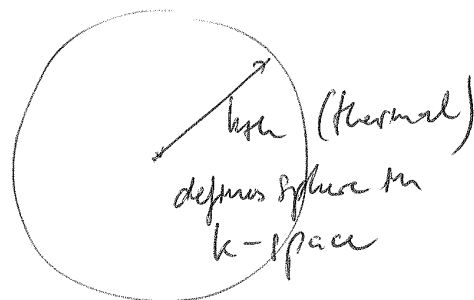 kth (thermal)
defines sphere in
k-space